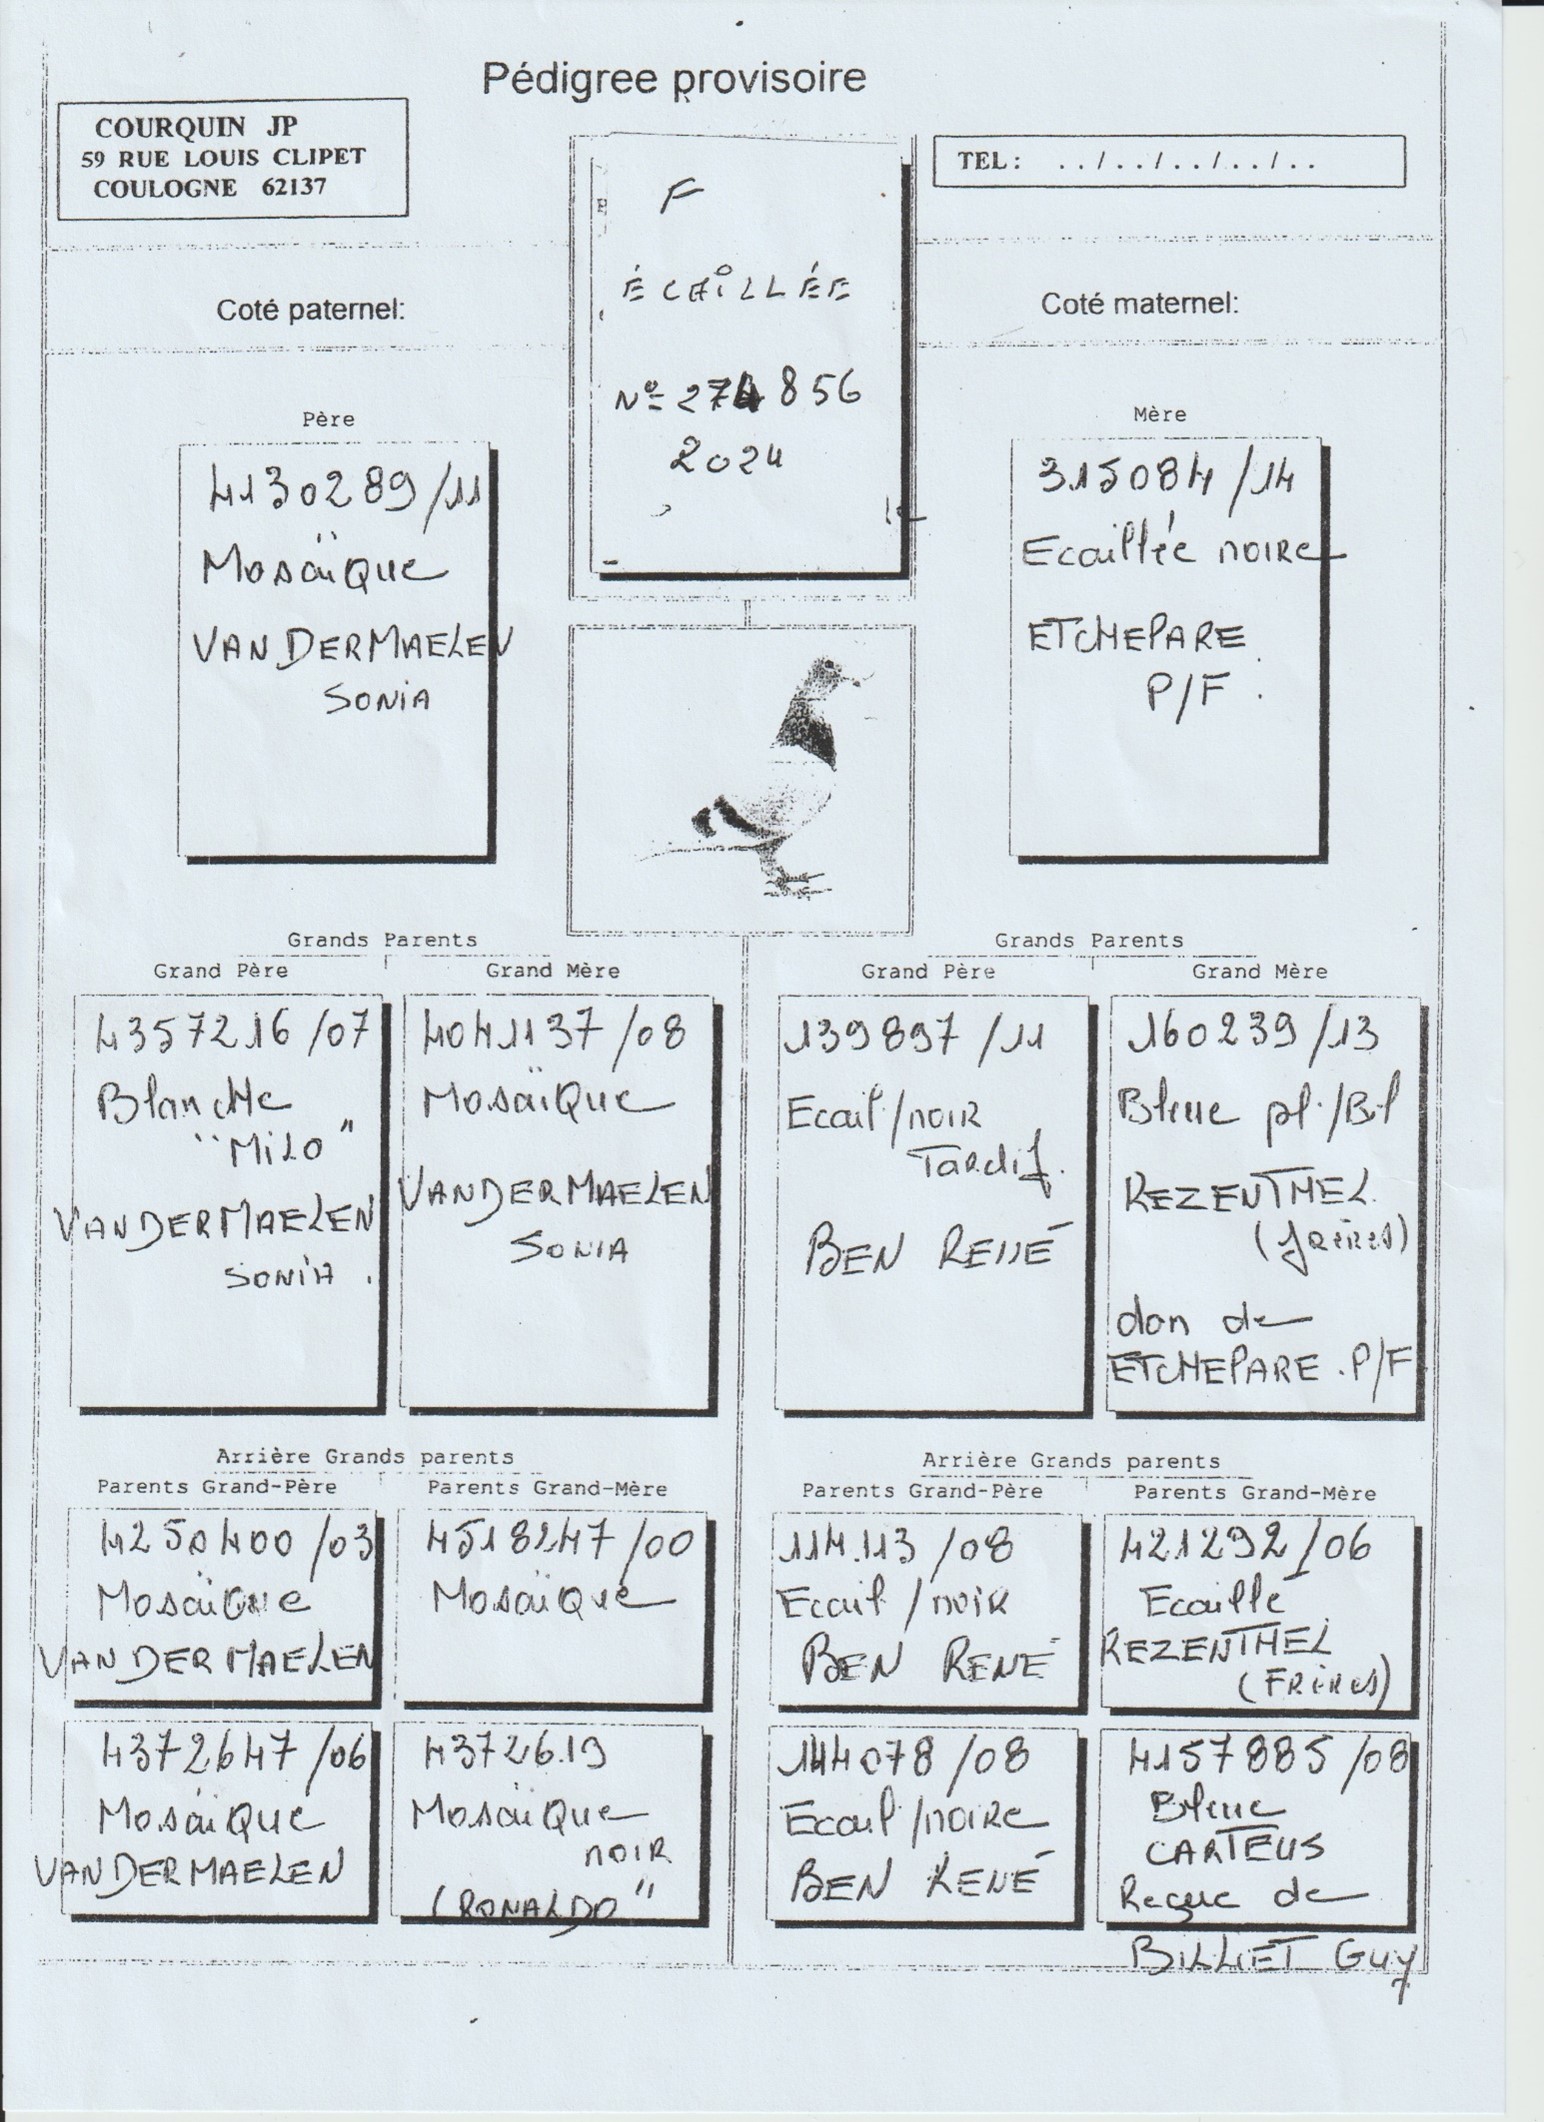 Pédigree provisoire
COURQUIN JP
59 RUE LOUIS CLIPET
COULOGNE 62137
TEL : . . / . . / . . / . . / . .
F
ÉCAILLÉE
N° 274856
2024
Coté paternel:
Coté maternel:
Père
4130289/11
Mosaïque
VANDERMAELEN
SONIA
Mère
315084/14
Ecaillée noire
ETCHEPARE
P/F.
Grands Parents
Grand Père
Grand Mère
4357216/07
Blanche
"MILO"
VANDERMAELEN
SONIA.
4041137/08
Mosaïque
VANDERMAELEN
SONIA
Grands Parents
Grand Père
Grand Mère
139897/11
Ecail/noir
Tardif.
BEN RENÉ
160239/13
Bleue pl./Bl
REZENTHEL
(frères)
don de
ETCHEPARE.P/F
Arrière Grands parents
Parents Grand-Père
Parents Grand-Mère
4250400/03
Mosaïque
VANDERMAELEN
4518247/00
Mosaïque
4372647/06
Mosaïque
VANDERMAELEN
43726.19
Mosaïque
noir
(RONALDO"
Arrière Grands parents
Parents Grand-Père
Parents Grand-Mère
114.113/08
Ecail/noir
BEN RENÉ
421292/06
Ecaille
REZENTHEL
(FRères)
144078/08
Ecail/noire
BEN RENÉ
4157885/08
Bleue
CARTEUS
Reçue de
BILLIET Guy